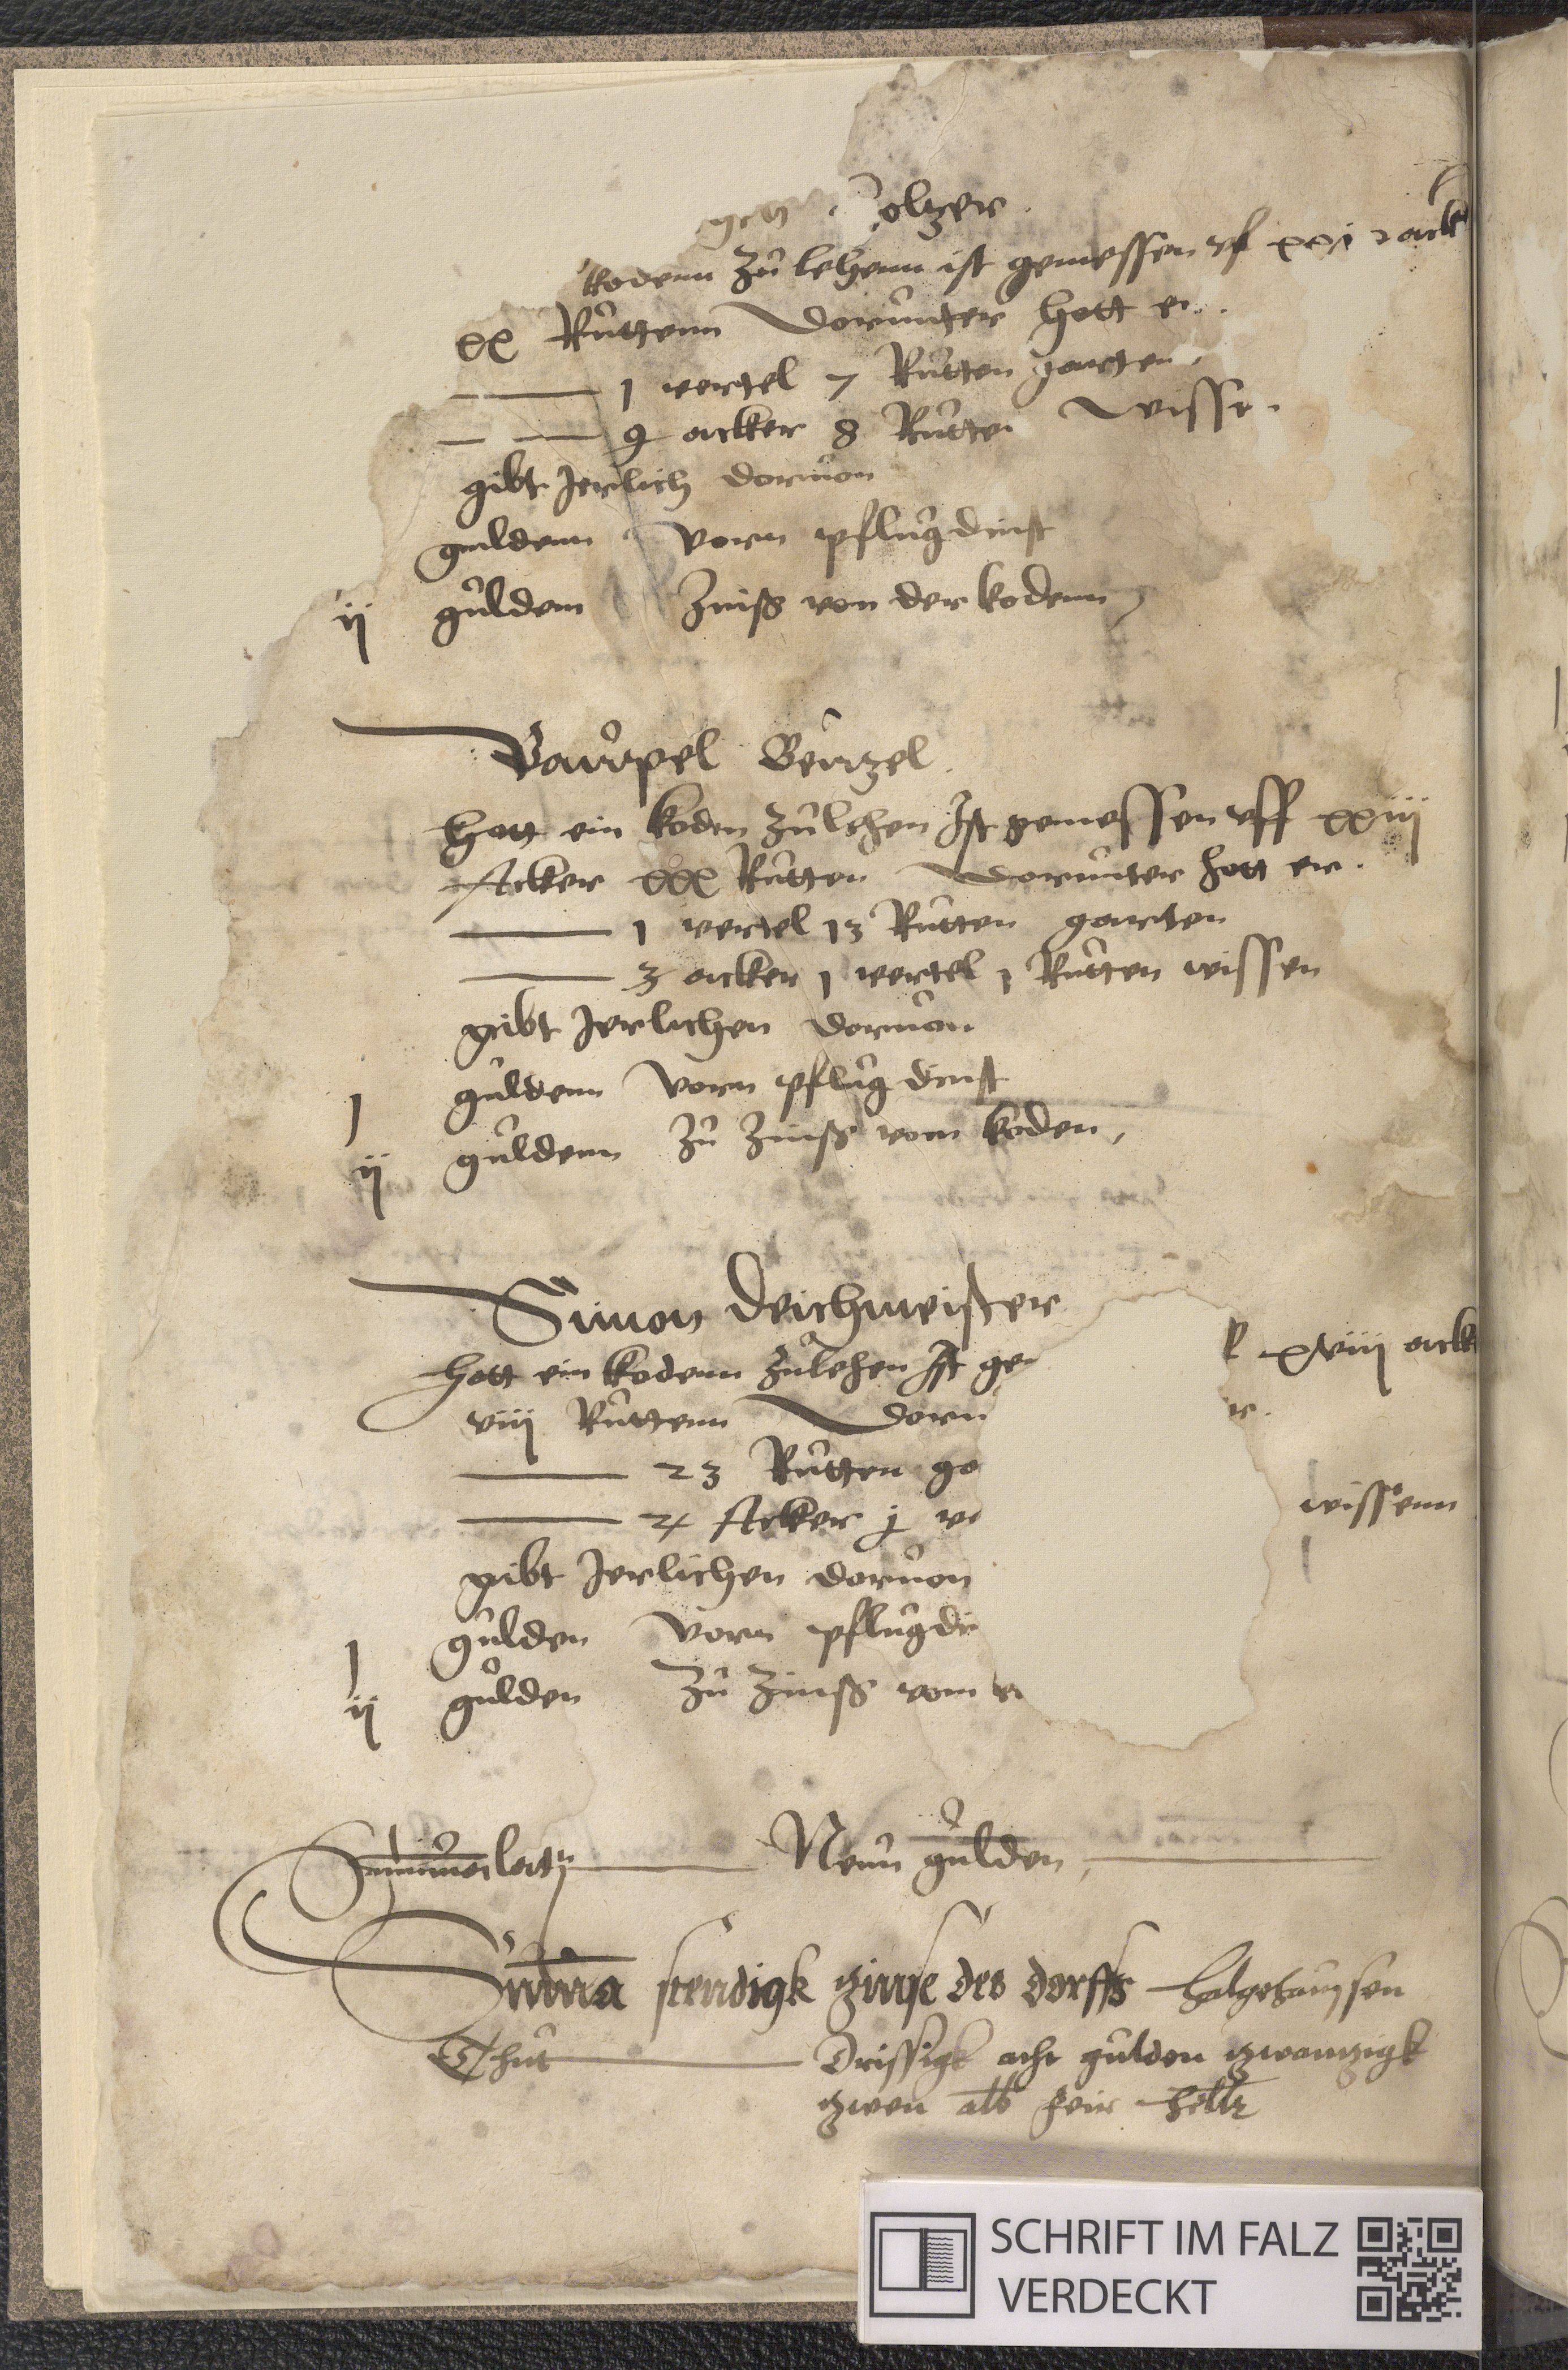 olzer
kodenn zu lehenn ist gemessen vf xxi ack
xx Ruttenn Dorunter hatt er
1 vertel 7 Rutten garten
9 acker 8 Rutten Wisse
gibt Jerlich doruon
guldenn Vorn pflugdinst
ij guldenn Zinß von der kodenn
Baupel Bentzel
Hatt ein koden zulehen Ist gemessen vff xxiij
Acker xxx Rutten Dorunter hatt er
1 vertel 13 Rutten garten
3 acker 1 vertel 1 Rutten wissen
gibt Jerlichen doruon
j guldenn Vorn pflug dinst
ij guldenn Zu Zinß vom koden
Simon Deichmeister
Hatt ein kodenn zulehen Ist ge xviij ack
viij Ruttenn Doru
23 Rutten ga
4 Acker j ve wissenn
gibt Jerlichen doruon
j gulden Vorn pflugdi
ij gulden Zu Zinß vom
Neun gulden
Summa stendigk zinse des dorffs Halgehaussen
Thut Drissigk acht gulden zwanzigk
zwen alb feir hellr
SCHRIFT IM FALZ
VERDECKT